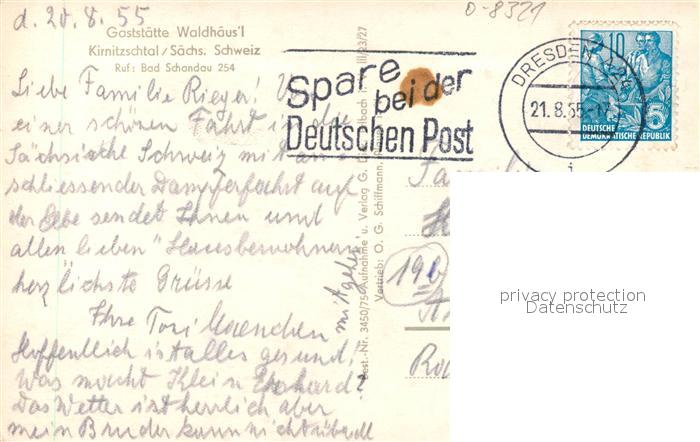 d. 20.8.55
0-8321
Gaststätte Waldhäus'l
Kirnitzschtal/Sächs. Schweiz
Ruf: Bad Schandau 254
Spare
bei der
Deutschen Post
DRESDEN
21.8.55
10
5
DEUTSCHE
DEMOKRATISCHE REPUBLIK
Liebe Familie Rieger! V
einer schönen Fahrt in die
Sächsische Schweiz mit an
schliessender Dampferfahrt auf
der Elbe sendet Ihnen und
allen lieben "Hausbewohnern
herzlichste Grüsse
Ihre Toni
Hoffentlich ist alles gesund,
was macht Klein
Das Wetter ist herrlich aber
mein Bruder kann nicht überall
mitgehen
Best.-Nr. 3450/75 Aufnahme u. Verlag G.
Vertrieb: O. G. Schiffmann,
III/23/27
19b
privacy protection
Datenschutz